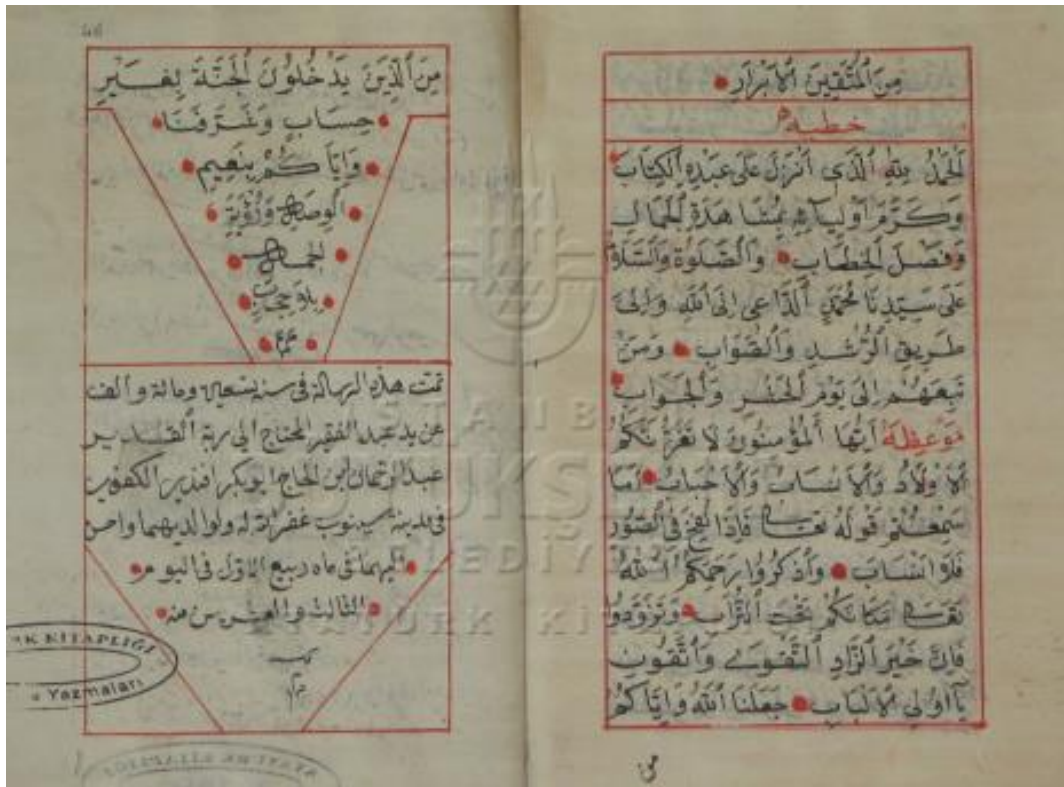 مِنَ الْمُتَّقِينَ الْأَبْرَارِ
خطبه
اَلْحَمْدُ لِلّٰهِ الَّذِى أَنْزَلَ عَلَى عَبْدِهِ الْكِتَابَ
وَكَرَّمَ أَوْلِيَآئِهِ بِمُشَاهَدَةِ الْجَمَالِ
وَفَصْلَ الْخِطَابِ وَالصَّلٰوةُ وَالسَّلَامُ
عَلَى سَيِّدِنَا مُحَمَّدٍ الدَّاعِى إِلَى اللّٰهِ وَإِلَى
طَرِيقِ الرُّشْدِ وَالصَّوَابِ وَمَنْ
تَبِعَهُمْ إِلَى يَوْمِ الْحَشْرِ وَالْجَوَابِ
مَوْعِظَه أَيُّهَا الْمُؤْمِنُونَ لَا تَغُرَّنَّكُمُ
الْأَوْلَادُ وَالْأَنْسَابُ وَالْأَحْبَابُ أَمَا
سَمِعْتُمْ قَوْلَهُ تَعَالَى فَإِذَا نُفِخَ فِى الصُّورِ
فَلَا أَنْسَابَ وَاذْكُرُوا رَحِمَكُمُ اللّٰهُ
تَعَالَى مَكَانَكُمْ تَحْتَ التُّرَابِ وَتَزَوَّدُوا
فَإِنَّ خَيْرَ الزَّادِ التَّقْوَى وَاتَّقُونِ
يَآ أُولِى الْأَلْبَابِ جَعَلَنَا اللّٰهُ وَإِيَّاكُمْ
مِنَ الَّذِينَ يَدْخُلُونَ الْجَنَّةَ بِغَيْرِ
حِسَابٍ وَشَرَّفَنَا
وَإِيَّاكُمْ بِنَعِيمِ
الْوِصَالِ وَرُؤْيَةِ
الْجَمَالِ
بِلَا حِجَابٍ
تمت هذه الرسالة فى سنة تسعين ومائة والف
عن يد عبد الفقير المحتاج الى ربه القدير
عبد الرحمان ابن الحاج ابو بكر افندى
فى مدينة سينوب غفر الله له ولوالديهما واحسن
اليهما فى ماه ربيع الاول فى اليوم
الثالث والعشرين منه